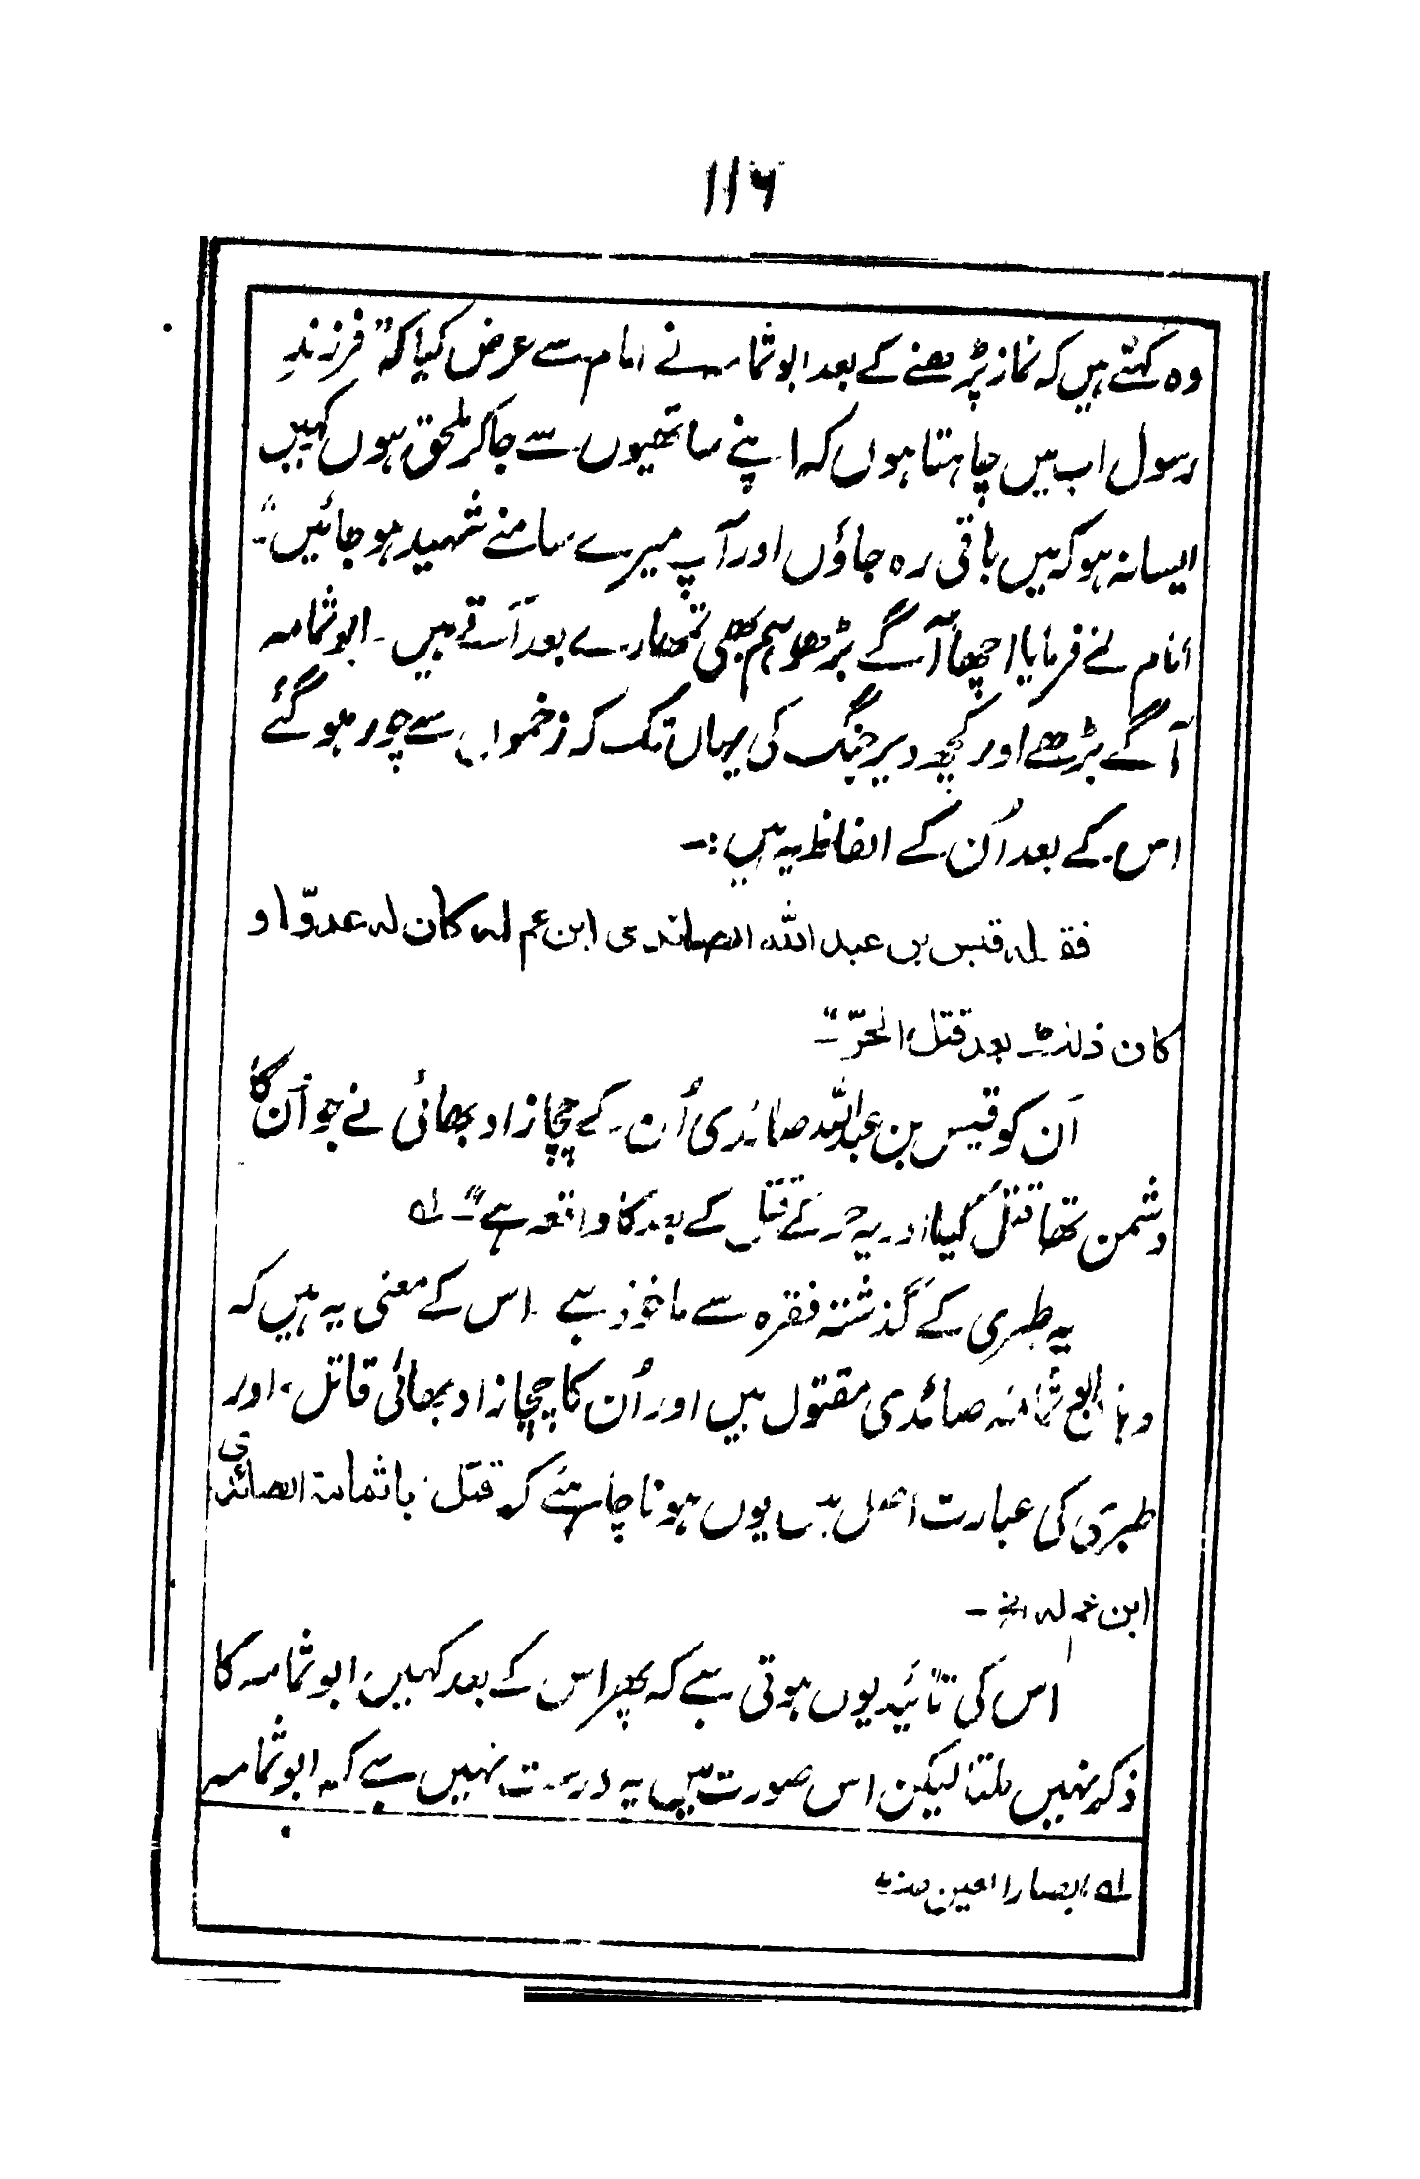 ۱۱۶
وہ کہتے ہیں کہ نماز پڑھنے کے بعد ابو ثمامہ نے امام سے عرض کیا کہ "فرزندِ
رسول اب میں چاہتا ہوں کہ اپنے ساتھیوں سے جا کر ملحق ہوں کہیں
ایسا نہ ہو کہ میں باقی رہ جاؤں اور آپ میرے سامنے شہید ہو جائیں"۔
امام نے فرمایا اچھا آگے بڑھو ہم بھی تمھارے بعد آتے ہیں۔ ابو ثمامہ
آگے بڑھے اور کچھ دیر جنگ کی یہاں تک کہ زخموں سے چور ہو گئے
اس کے بعد اُن کے الفاظ یہ ہیں :۔
فقتله قیس بن عبد اللہ الصائدی ابن عم لہ کان لہ عدوّا و
کان ذلک بعد قتل الحرّ"۔
اُن کو قیس بن عبداللہ صائدی اُن کے چچازاد بھائی نے جو اُن کا
دشمن تھا قتل کیا اور یہ حر کے قتل کے بعد کا واقعہ ہے"۔ لہ
یہ طبری کے گذشتہ فقرہ سے ماخوذ ہے۔ اس کے معنی یہ ہیں کہ
وہاں ابو ثمامہ صائدی مقتول ہیں اور اُن کا چچازاد بھائی قاتل، اور
طبری کی عبارت اصل میں یوں ہونا چاہئے کہ قتل ابا ثمامۃ الصائدی
ابن عم لہ الخ۔
اس کی تائید یوں ہوتی ہے کہ پھر اس کے بعد کہیں ابو ثمامہ کا
ذکر نہیں ملتا لیکن اس صورت میں یہ درست نہیں ہے کہ ابو ثمامہ
لہ ابصار العین